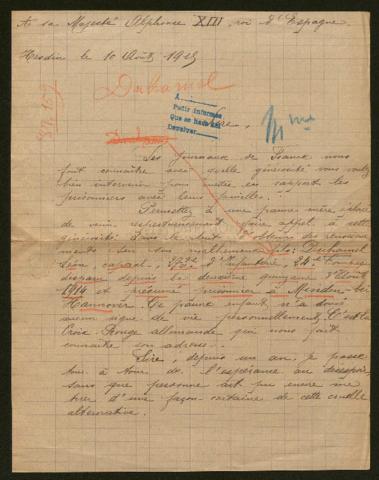 A sa Majesté Alphonse XIII, roi d'Espagne
Hesdin le 10 Août 1915
Duhamel
A
Pedir informes
Que se haga
Devolver
Sire,
Mme
Les journaux de France nous
font connaître avec quelle générosité vous voulez
bien intervenir pour mettre en rapport les
prisonniers avec leurs familles.
Permettez à une pauvre mère éplorée
de venir respectueusement faire appel à cette
générosité dans le but d'obtenir des renseigne
ments sur son malheureux fils, Duhamel
Léon, caporal, d'Infanterie,
disparu depuis la deuxième quinzaine d'Août
1914 et présumé prisonnier à Menden bei
Hannover. Ce pauvre enfant n'a donné
aucun signe de vie personnellement, C'est la
Croix-Rouge allemande qui nous fait
connaître son adresse.
Sire, depuis un an, je passe
tour à tour de l'espérance au désespoir,
sans que personne ait pu encore me
tirer d'une façon certaine de cette cruelle
alternative.